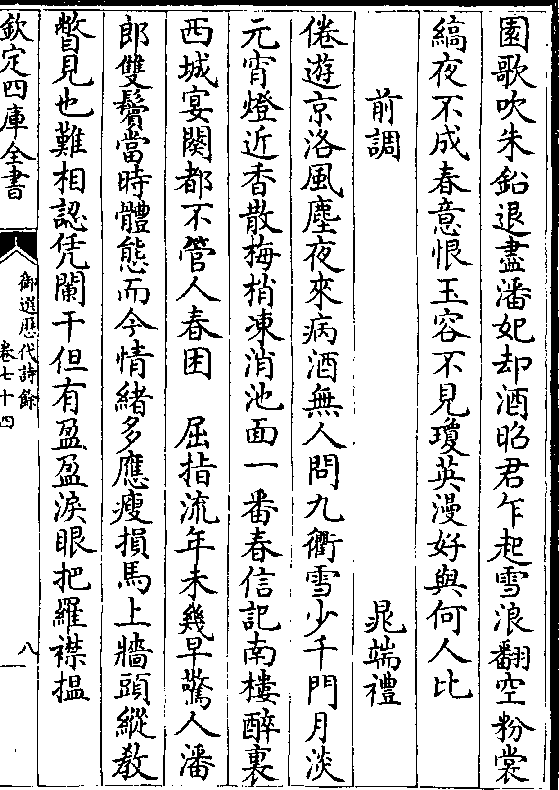 園歌吹朱鉛退盡潘妃却酒昭君乍起雪浪翻空粉裳
縞夜不成春意恨玉容不見瓊英漫好與何人比
前調　晁端禮
倦遊京洛風塵夜來病酒無人問九衢雪少千門月淡
元宵燈近香散梅梢凍消池面一番春信記南樓醉裏
西城宴闋都不管人春困　屈指流年未幾早驚人潘
郎雙鬢當時體態而今情緒多應瘦損馬上牆頭縱教
瞥見也難相認凭闌干但有盈盈淚眼把羅襟揾
欽定四庫全書
御選歷代詩餘
卷七十四
八